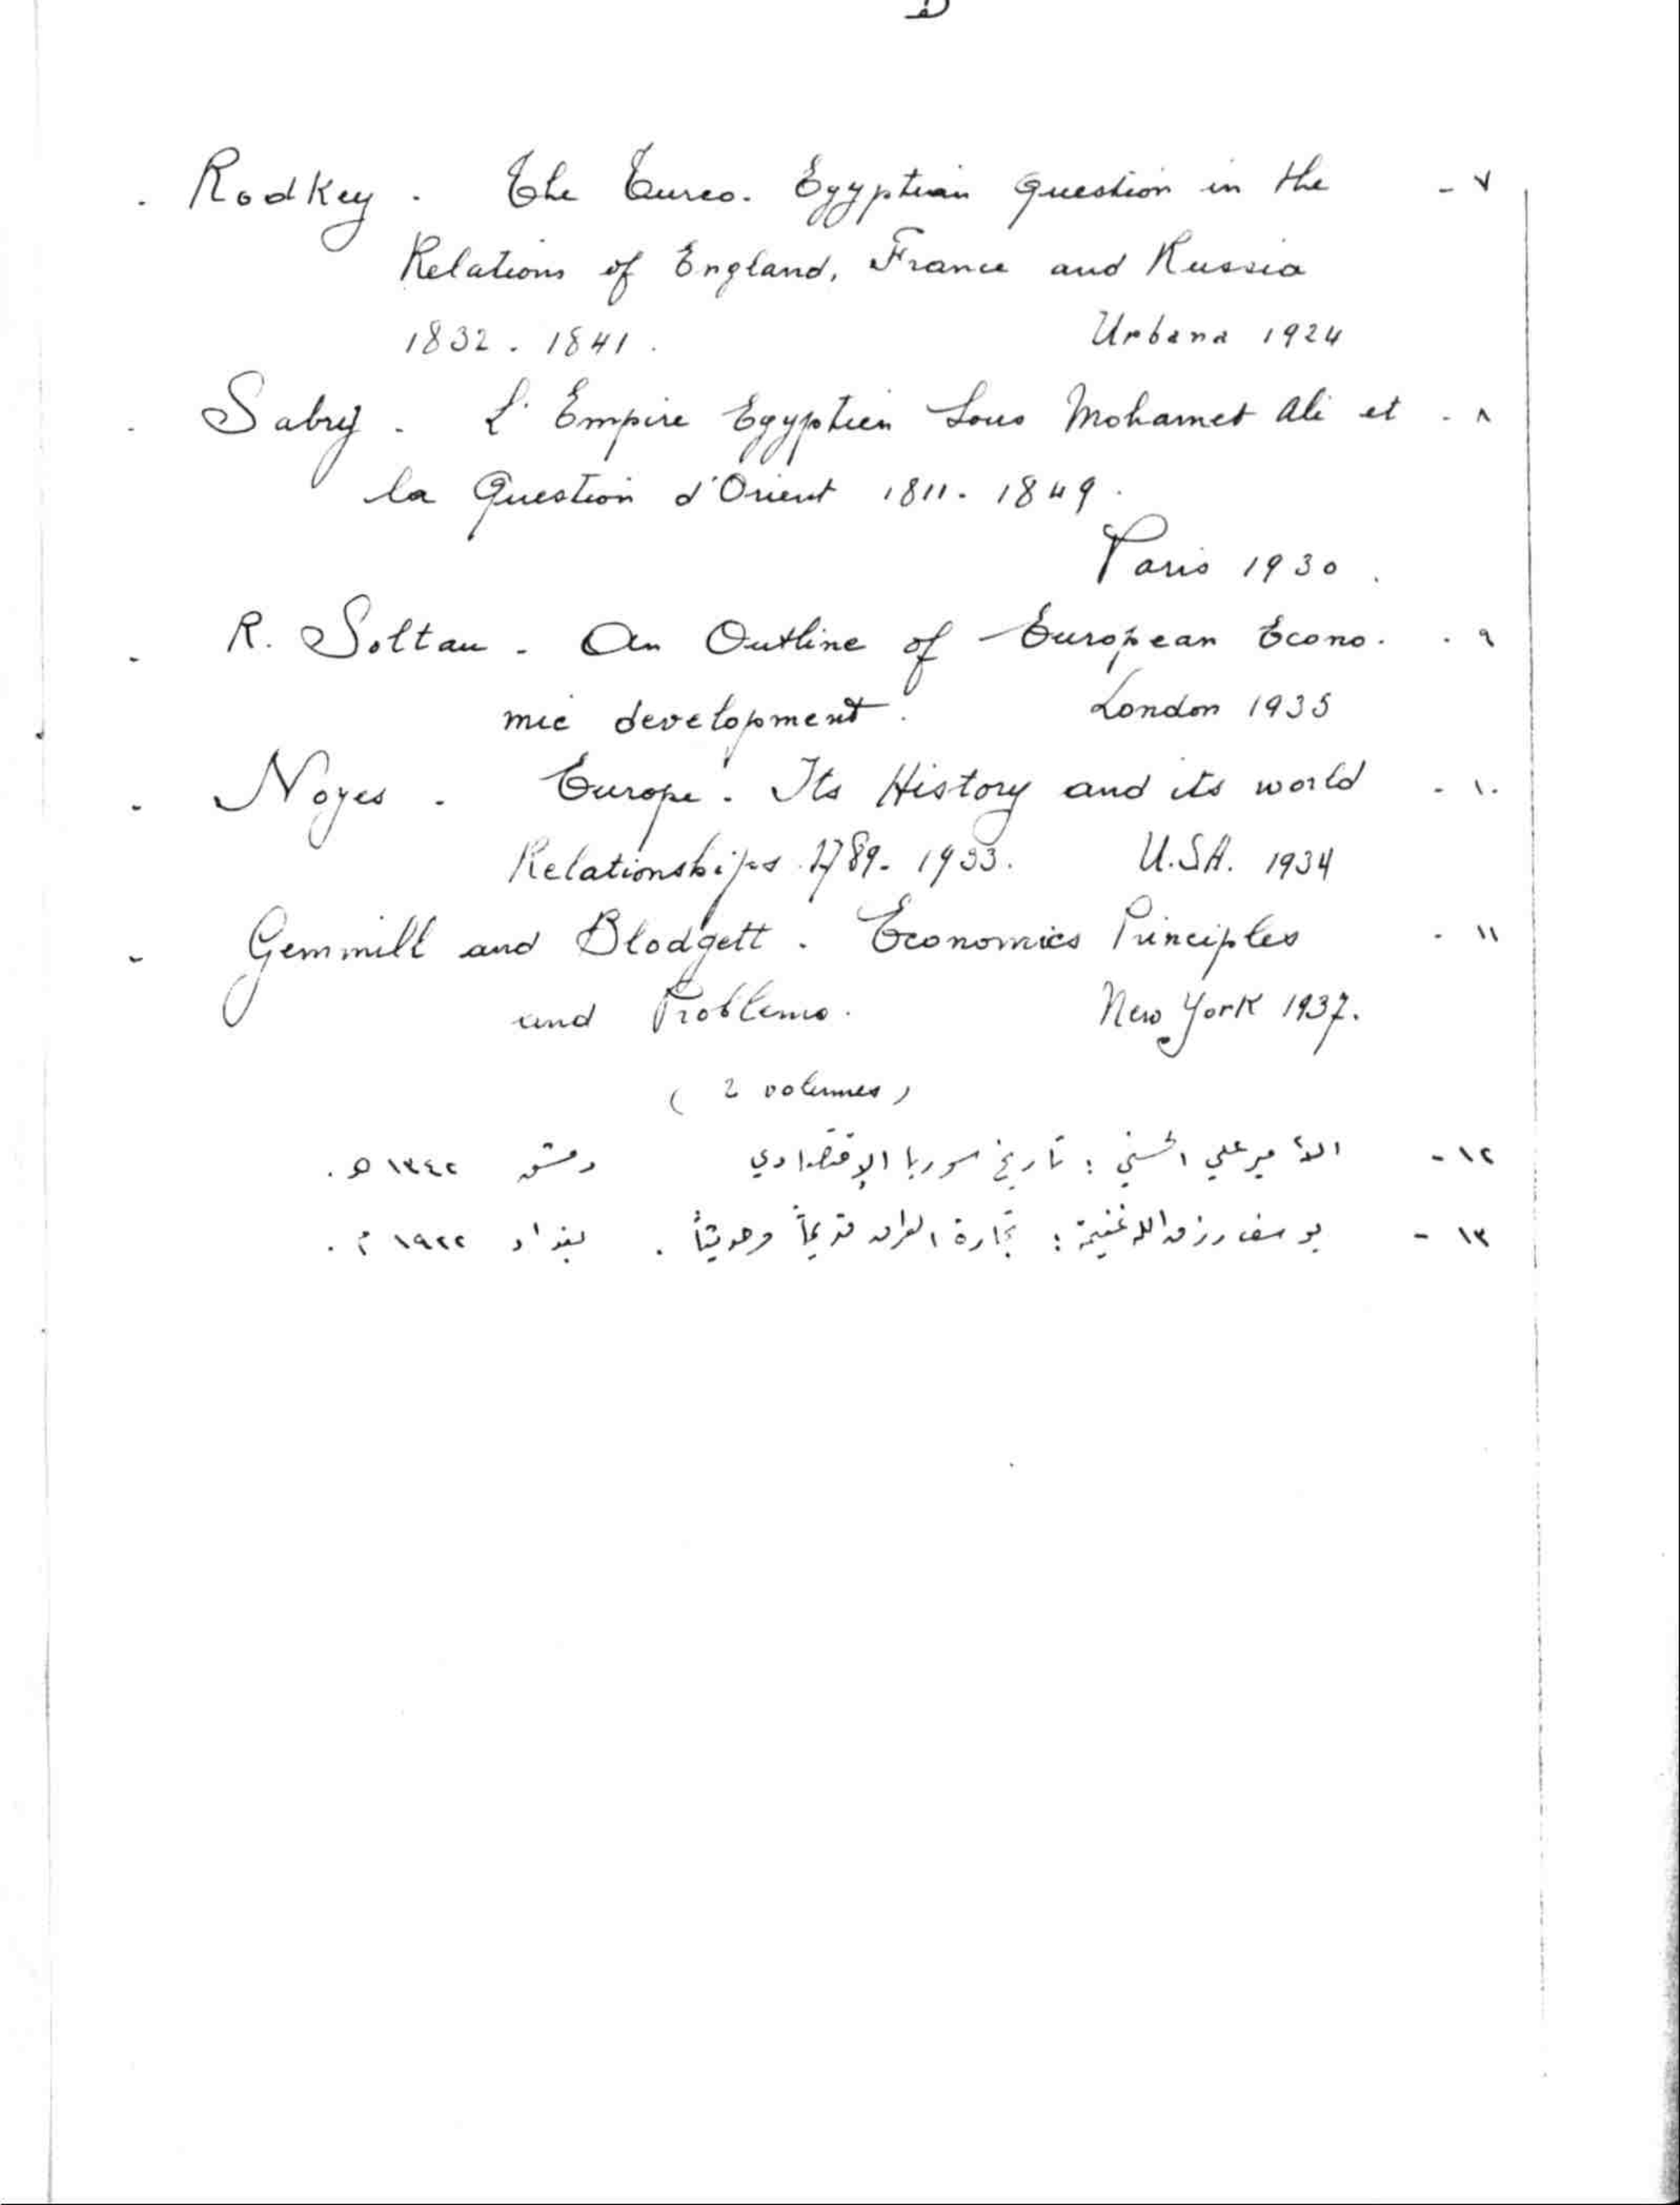 Rodkey. The Turco-Egyptian Question in the - ٧
Relations of England, France and Russia
1832-1841. Urbana 1924
Sabry. L'Empire Egyptien Sous Mohamet Ali et - ٨
la Question d'Orient 1811-1849.
Paris 1930.
R. Soltau - An Outline of European Econo- - ٩
mic development. London 1935
Noyes. Europe. Its History and its world - ١٠
Relationships 1789-1933. U.S.A. 1934
Gemmill and Blodgett. Economics Principles - ١١
and Problems. New York 1937.
( 2 volumes )
١٢- الأمير علي الحسني : تاريخ سوريا الإقتصادي دمشق ١٣٤٢ هـ.
١٣ - يوسف رزق الله غنيمة : تجارة العراق قديماً وحديثاً . بغداد ١٩٢٢ م.